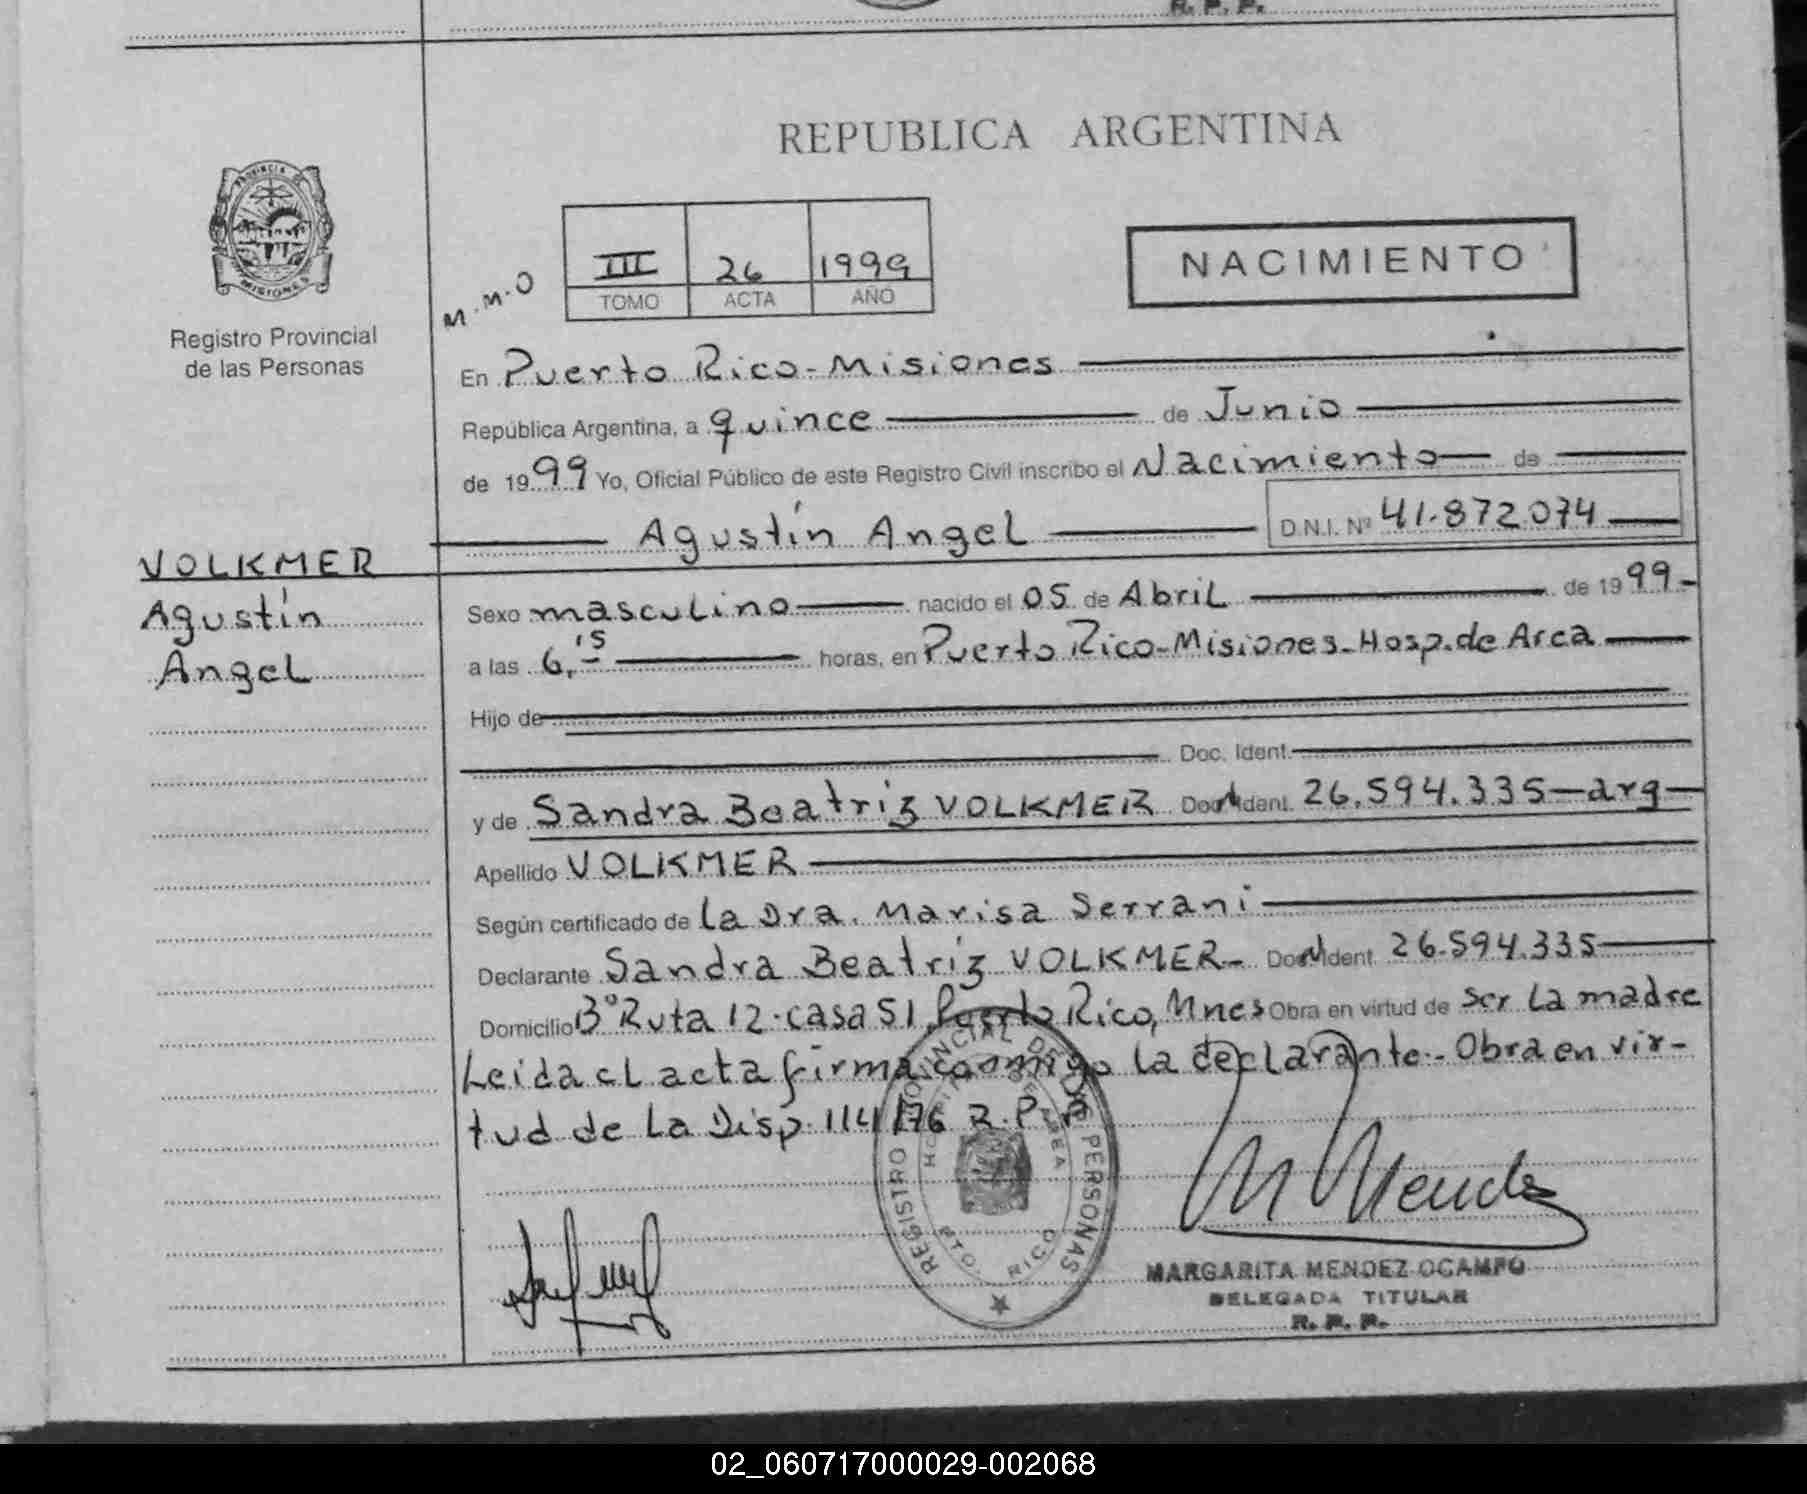 R. P. P.
REPUBLICA ARGENTINA
PROVINCIA DE
MISIONES
Registro Provincial
de las Personas
M.M.O
III 26 1999
TOMO ACTA AÑO
NACIMIENTO
En Puerto Rico-Misiones
República Argentina, a quince de Junio
de 1999 Yo, Oficial Público de este Registro Civil inscribo el Nacimiento de
Agustín Angel D.N.I. Nº 41.872.074
VOLKMER
Agustín
Angel
Sexo masculino nacido el 05 de Abril de 1999-
a las 6,15 horas, en Puerto Rico-Misiones-Hosp.de Area
Hijo de
Doc. Ident.
y de Sandra Beatriz VOLKMER Doc. Ident. 26.594.335-arg-
Apellido VOLKMER
Según certificado de la Dra. Marisa Serrani
Declarante Sandra Beatriz VOLKMER- Doc. Ident. 26.594.335
Domicilio Bº Ruta 12-casa 51, Puerto Rico, Mnes Obra en virtud de ser la madre
Leida el acta firma conmigo la declarante.- Obra en vir-
tud de la Disp. 114/76 R.P.P
REGISTRO PROVINCIAL DE LAS PERSONAS
HOSPITAL DE AREA
PTO. RICO
M Mendez
MARGARITA MENDEZ OCAMPO
DELEGADA TITULAR
R. P. P.
02_060717000029-002068